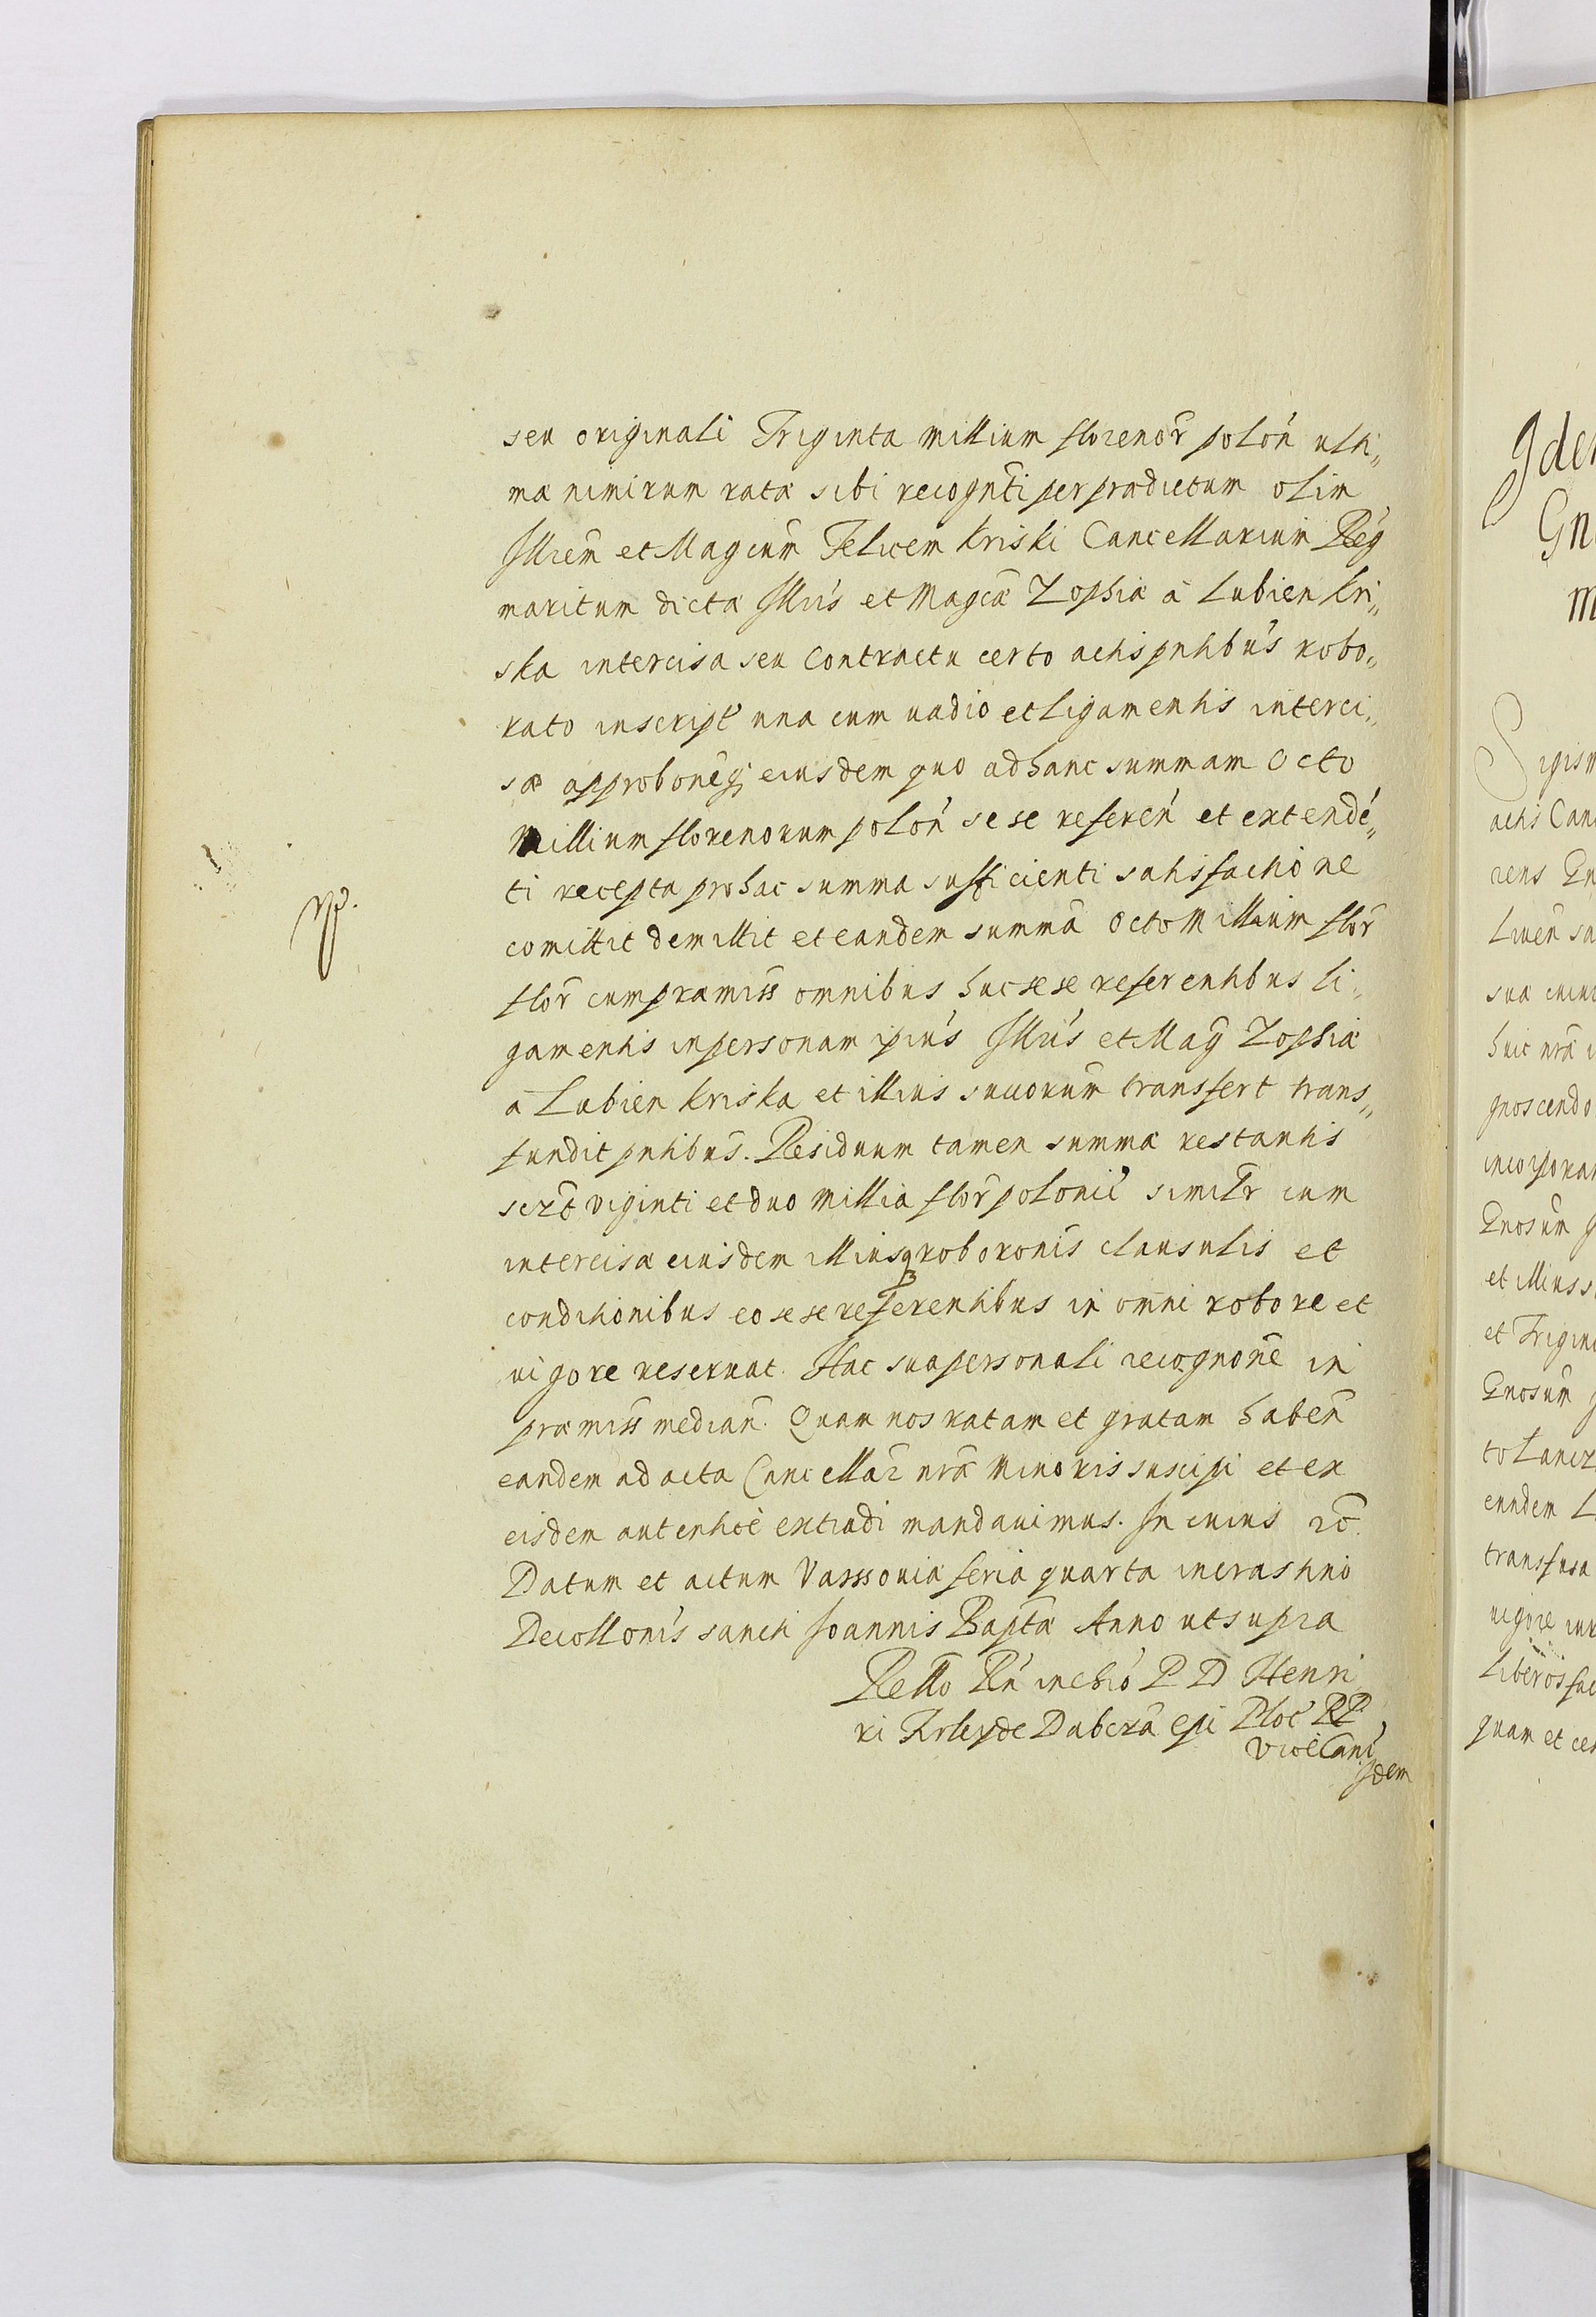 seu originali Triginta millium florenor̃ polon̄ ulti„
mæ nimirum ratæ sibi recognt̃i per prædictum olim
Illrem̃ et Magcum̃ Felicem Kriski Cancellarium Reg̃
maritum dictæ Illris̃ et Magcæ̃ Zophiæ à Lubien Kri„
ska intercisa seu Contractu certo actis pntibus̃ robo„
rato inscript̃ una cum uadio et ligamentis interci„
sæ approboneq̃; eiusdem quo ad hanc summam Octo
Millium florenorum polon̄ sese referen̄ et extendē„
ti recepta pro hac summa sufficienti satisfactione
comittit demittit et eandem summā Octo Millium flor̃
flor̃ cum præmiss̃ omnibus huc sese referentibus li„
gamentis in personam ipius̃ Illris̃ et Mag̃ Zophiæ
à Lubien Kriska et illius succorum̃ transfert trans„
fundit pntibus̃. Residuum tamen summæ restantis
scizt̃ viginti et duo Millia flor̃ polonic̃ similr̃ cum
intercisa eiusdem illiusq; roboronis̃ clausulis et
conditionibus eo sese referentibus in omñi robore et
uigore reseruat. Hac sua personali recognonẽ in
præmiss̃ median̄. Quam nos ratam et gratam haben̄
eandem ad acta Cancellar̃ nrã Minoris suscipi et ex
eisdem autenticè extradi mandauimus. In cuius rẽ
Datum et actum Varssouiæ feria quarta in crastino
Decollonis̃ sancti Joannis Baptæ̃ Anno ut supra
Relto Rñ in chro̅ P D Henri
ci Firleyde Dabcza epi Ploc̃ RP
ViceCanc̃
Idem